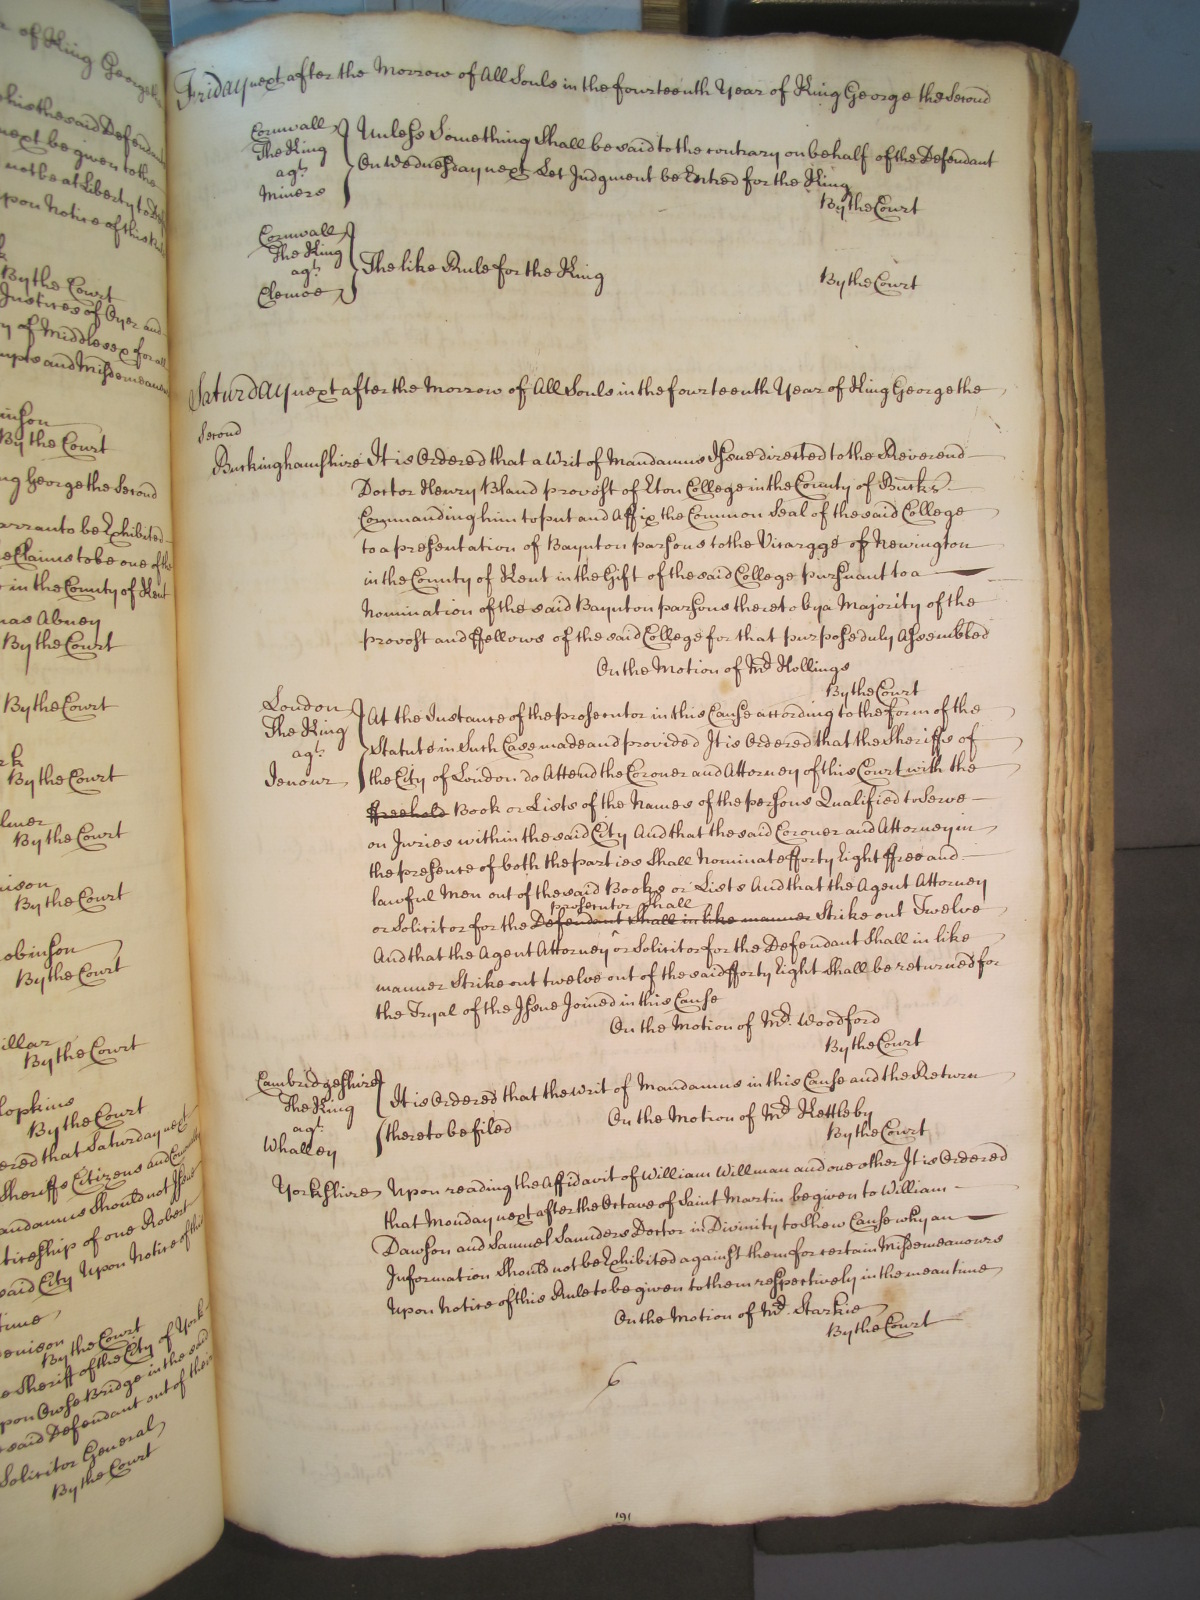 e of King George
this the said Defendant
next be given to the
not be at Liberty to
upon Notice of this Rule
By the Court
Justices of Oyer and
ty of Middlesex for all
and Misdemeanors
inson
By the Court
ng George the Second
arranto be Exhibited
he Claims to be one of the
in the County of Kent
mas Abney
By the Court
By the Court
rk
By the Court
lmer
By the Court
nison
By the Court
obinson
By the Court
illar
By the Court
Hopkins
By the Court
ered that Saturday next
Sheriffs Citizens and
andamus Should not Issue
of one Robert
said City Upon Notice of this
time
enison
By the Court
e Sheriff of the City of York
upon Owse Bridge in the said
said Defendant out of their
Solicitor General
By the Court
Friday next after the Morrow of All Souls in the fourteenth Year of King George the Second
Cornwall
The King
agt
Miners
Unless Something Shall be said to the contrary on behalf of the Defendant
On Wednesday next Let Judgment be Entred for the King
By the Court
Cornwall
The King
agt
Clemoe
The like Rule for the King
By the Court
Saturday next after the Morrow of All Souls in the fourteenth Year of King George the
Second
Buckinghamshire It is Ordered that a Writ of Mandamus Issue directed to the Reverend
Doctor Henry Bland provost of Eton College in the County of Bucks
Commanding him to put and Affix the Common Seal of the said College
to a presentation of Baynton parsons to the Vicaragge of Newington
in the County of Kent in the Gift of the said College pursuant to a
Nomination of the said Baynton parsons thereto by a Majority of the
provost and ffellows of the said College for that purpose duly Assembled
On the Motion of Mr Hollings
By the Court
London
The King
agt
Jenour
At the Instance of the prosecutor in this Cause according to the form of the
Statute in Such Case made and provided It is Ordered that the Sheriffs of
the City of London do Attend the Coroner and Attorney of this Court with the
ffreehold Book or Lists of the Names of the persons Qualified to Serve
on Juries within the said City And that the said Coroner and Attorney in
the presence of both the parties Shall Nominate fforty Eight ffree and
lawful Men out of the said Books or Lists And that the Agent Attorney
prosecutor Shall
or Solicitor for the Defendant shall in like manner Strike out Twelve
And that the Agent Attorney or Solicitor for the Defendant Shall in like
manner Strike out twelve out of the said fforty Eight Shall be returned for
the Tryal of the Issue Joined in this Cause
On the Motion of Mr. Woodford
By the Court
Cambridgeshire
The King
agt
Whalley
It is Ordered that the Writ of Mandamus in this Cause and the Return
thereto be filed
On the Motion of Mr Kettleby
By the Court
Yorkshire Upon reading the Affidavit of William Willman and one other It is Ordered
that Monday next after the Octave of Saint Martin be given to William
Dawson and Samuel Saunders Doctor in Divinity to Shew Cause why an
Information Should not be Exhibited against them for certain Misdemeanours
upon Notice of this Rule to be given to them respectively in the meantime
On the Motion of Mr. Starkie
By the Court
6
191